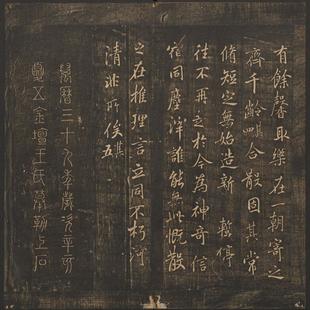 有餘馨取樂在一朝寄之
齊千齡其四合散固其常
脩短定無始造新 暫停
往不再起於今為神奇信
宿同塵滓誰能無此慨散
之在推理言立同不朽河
清非所俟其五
萬曆三十九年歲次辛亥
夏五金壇王氏摹勒上石